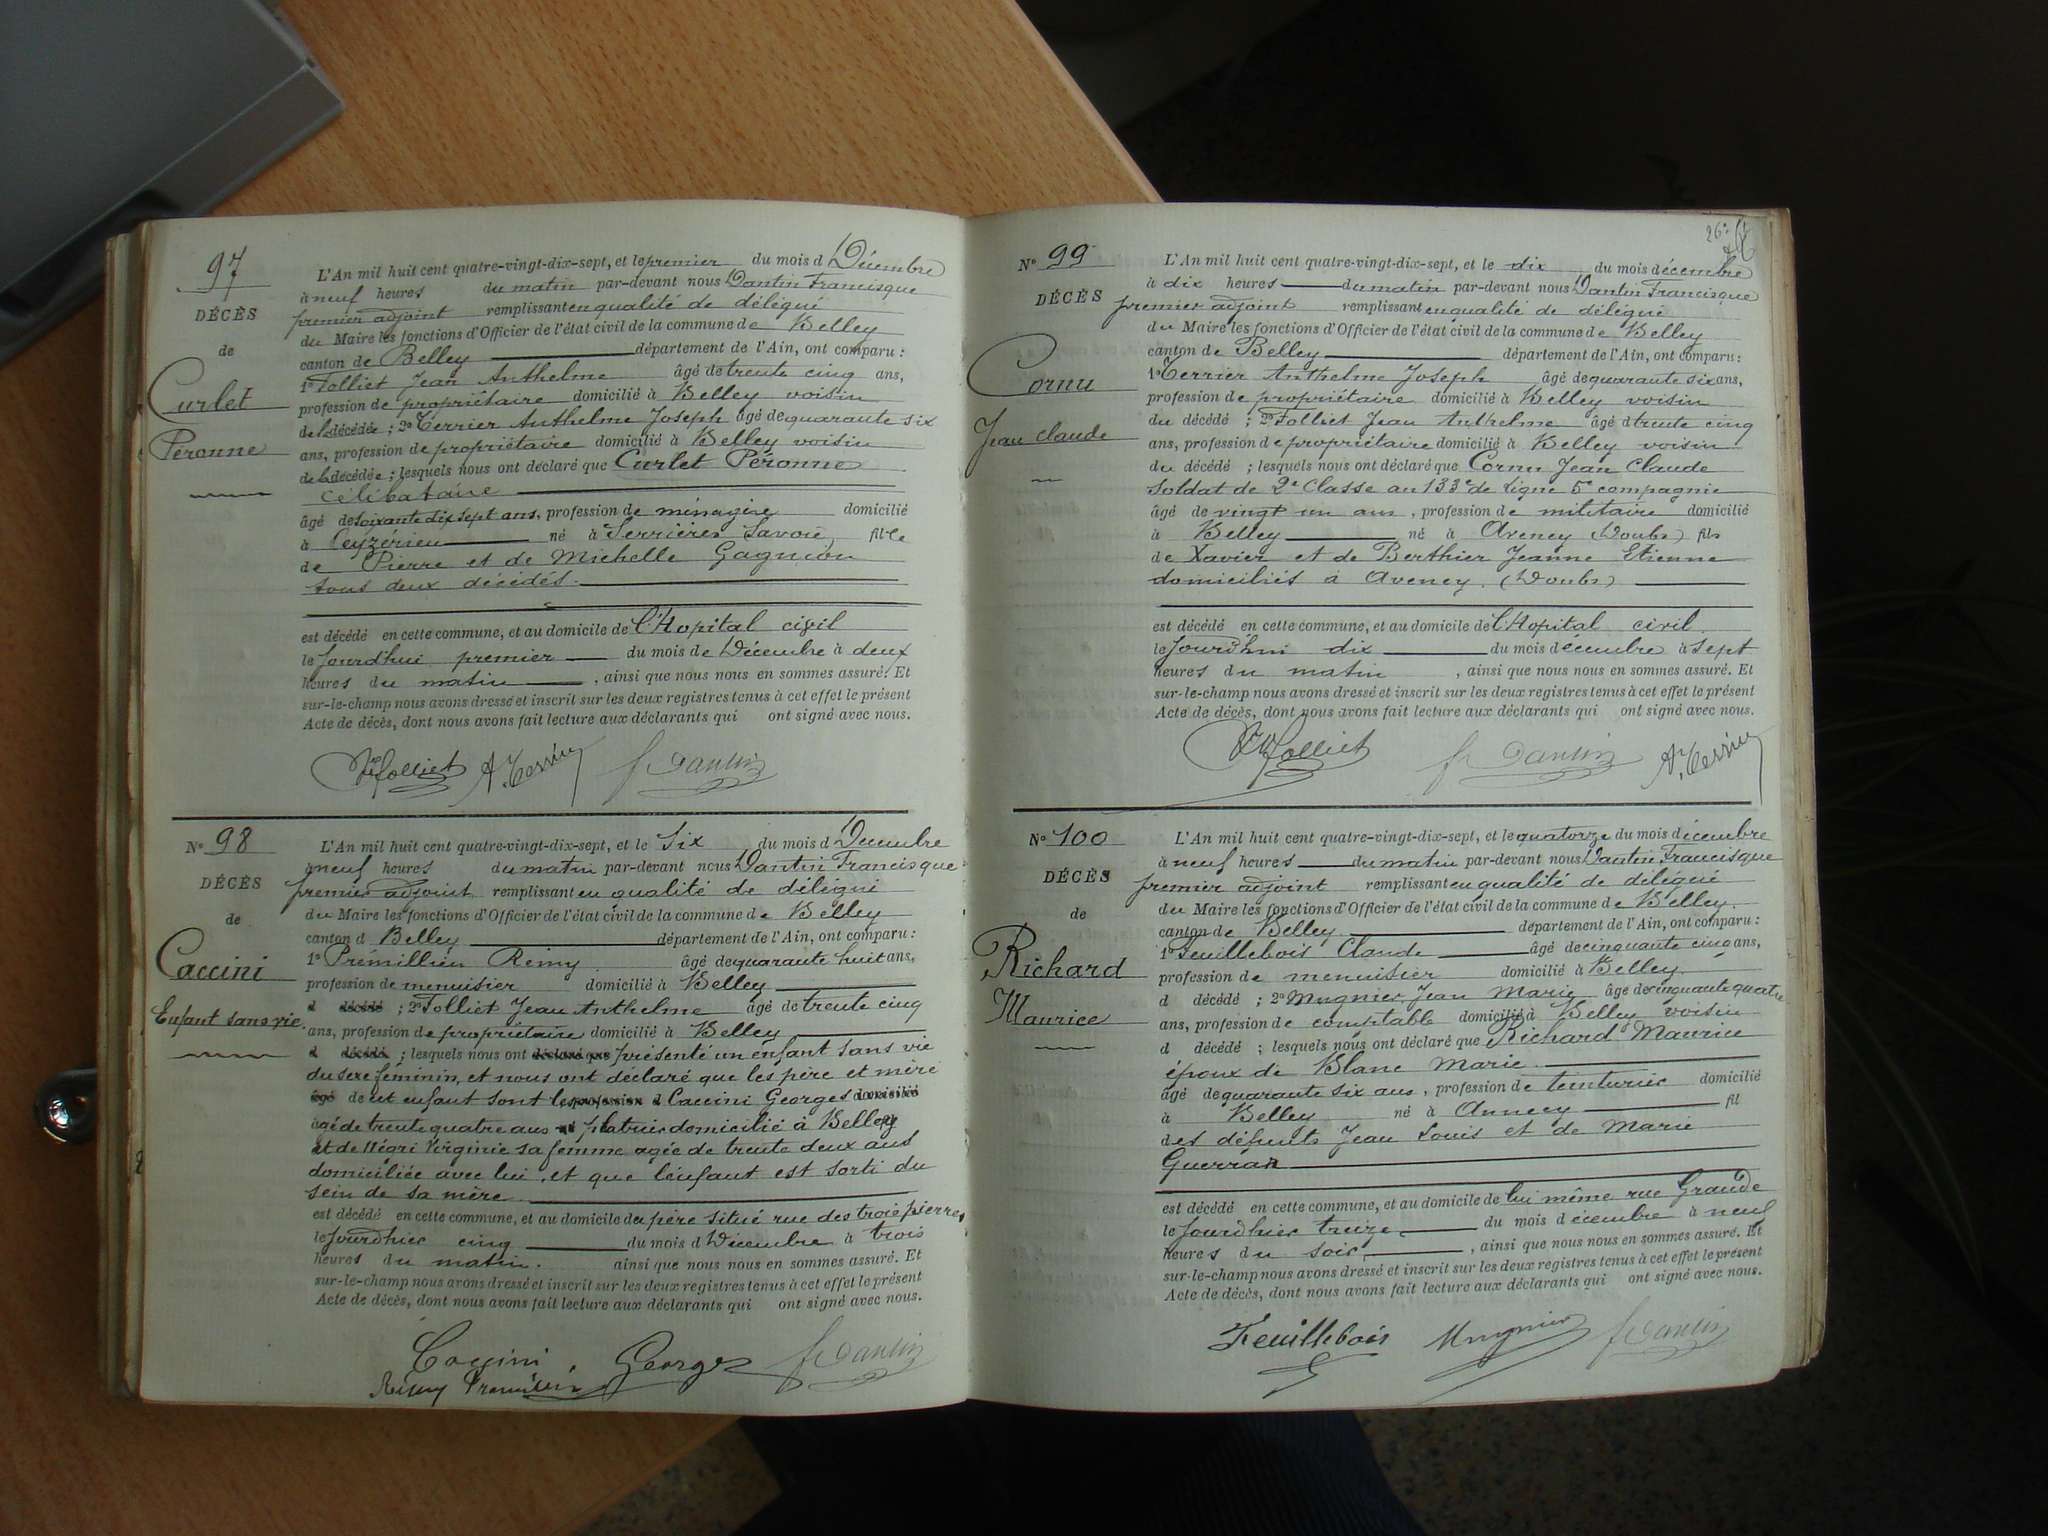 97
DÉCÈS
de
Curlet
Péronne
L'An mil huit cent quatre-vingt-dix-sept, et le premier du mois d Décembre
à neuf heures du matin par-devant nous Dantin Francisque
premier adjoint remplissant en qualité de délégué
du Maire les fonctions d'Officier de l'état civil de la commune de Belley
canton de Belley département de l'Ain, ont comparu :
1º Folliet Jean Anthelme âgé de trente cinq ans,
profession de propriétaire domicilié à Belley voisin
de la décédée ; 2º Terrier Anthelme Joseph âgé de quarante six
ans, profession de propriétaire domicilié à Belley voisin
de la décédée ; lesquels nous ont déclaré que Curlet Péronne
célibataire
âgé de soixante dix sept ans, profession de ménagère domicilié
à Ceyzérieu né à Serrières Savoie, fille
de Pierre et de Michelle Gagnion
tous deux décédés.
est décédé en cette commune, et au domicile de l'Hopital civil
le jourd'hui premier du mois de Décembre à deux
heures du matin, ainsi que nous nous en sommes assuré. Et
sur-le-champ nous avons dressé et inscrit sur les deux registres tenus à cet effet le présent
Acte de décès, dont nous avons fait lecture aux déclarants qui ont signé avec nous.
Folliet A. Terrier f Dantin
Nº 98
DÉCÈS
de
Caccini
Enfant sans vie.
L'An mil huit cent quatre-vingt-dix-sept, et le Six du mois d Decembre
à neuf heures du matin par-devant nous Dantin Francisque
premier adjoint remplissant en qualité de délégué
du Maire les fonctions d'Officier de l'état civil de la commune de Belley
canton d Belley département de l'Ain, ont comparu :
1º Prémillieu Rémy âgé de quarante huit ans,
profession de menuisier domicilié à Belley
d décédé ; 2º Folliet Jean Anthelme âgé de trente cinq
ans, profession de propriétaire domicilié à Belley
d décédé ; lesquels nous ont déclaré que présenté un enfant sans vie
du sexe féminin, et nous ont déclaré que les père et mère
âgé de cet enfant sont les profession d Caccini Georges domicilié
agé de trente quatre ans platrier domicilié à Belley
et de Négri Virginie sa femme agée de trente deux ans
domiciliée avec lui, et que l'enfant est sorti du
sein de sa mère
est décédé en cette commune, et au domicile du père situé rue des trois pierres,
le jourdhier cinq du mois d Décembre à trois
heures du matin. ainsi que nous nous en sommes assuré. Et
sur-le-champ nous avons dressé et inscrit sur les deux registres tenus à cet effet le présent
Acte de décès, dont nous avons fait lecture aux déclarants qui ont signé avec nous.
Caccini Georges f Dantin
Rémy
26e
Nº 99
DÉCÈS
Cornu
Jean Claude
L'An mil huit cent quatre-vingt-dix-sept, et le dix du mois décembre
à dix heures du matin par-devant nous Dantin Francisque
premier adjoint remplissant en qualité de délégué
du Maire les fonctions d'Officier de l'état civil de la commune de Belley
canton de Belley département de l'Ain, ont comparu :
1º Terrier Anthelme Joseph âgé de quarante six ans,
profession de propriétaire domicilié à Belley voisin
du décédé ; 2º Folliet Jean Anthelme âgé d trente cinq
ans, profession de propriétaire domicilié à Belley voisin
du décédé ; lesquels nous ont déclaré que Cornu Jean Claude
soldat de 2e classe au 133e de ligne 5e compagnie
âgé de vingt un ans, profession de militaire domicilié
à Belley né à Aveney (Doubs) fils
de Xavier et de Berthier Jeanne Etienne
domiciliés à Aveney. (Doubs)
est décédé en cette commune, et au domicile de l'Hopital civil
le jourd'hui dix du mois décembre à sept
heures du matin, ainsi que nous nous en sommes assuré. Et
sur-le-champ nous avons dressé et inscrit sur les deux registres tenus à cet effet le présent
Acte de décès, dont nous avons fait lecture aux déclarants qui ont signé avec nous.
Folliet f Dantin A. Terrier
Nº 100
DÉCÈS
de
Richard
Maurice
L'An mil huit cent quatre-vingt-dix-sept, et le quatorze du mois décembre
à neuf heures du matin par-devant nous Dantin Francisque
premier adjoint remplissant en qualité de délégué
du Maire les fonctions d'Officier de l'état civil de la commune de Belley.
canton de Belley département de l'Ain, ont comparu :
1º Feuillebois Claude âgé de cinquante cinq ans,
profession de menuisier domicilié à Belley.
d décédé ; 2º Mugnier Jean Marie âgé de cinquante quatre
ans, profession de comptable domicilié à Belley voisin
d décédé ; lesquels nous ont déclaré que Richard Maurice
époux de Blanc Marie.
âgé de quarante six ans, profession de teinturier domicilié
à Belley né à Annecy fil
des défunts Jean Louis et de Marie
Guerraz
est décédé en cette commune, et au domicile de lui même rue Grande
le jourdhier treize du mois décembre à neuf
heures du soir, ainsi que nous nous en sommes assuré. Et
sur-le-champ nous avons dressé et inscrit sur les deux registres tenus à cet effet le présent
Acte de décès, dont nous avons fait lecture aux déclarants qui ont signé avec nous.
Feuillebois Mugnier f Dantin